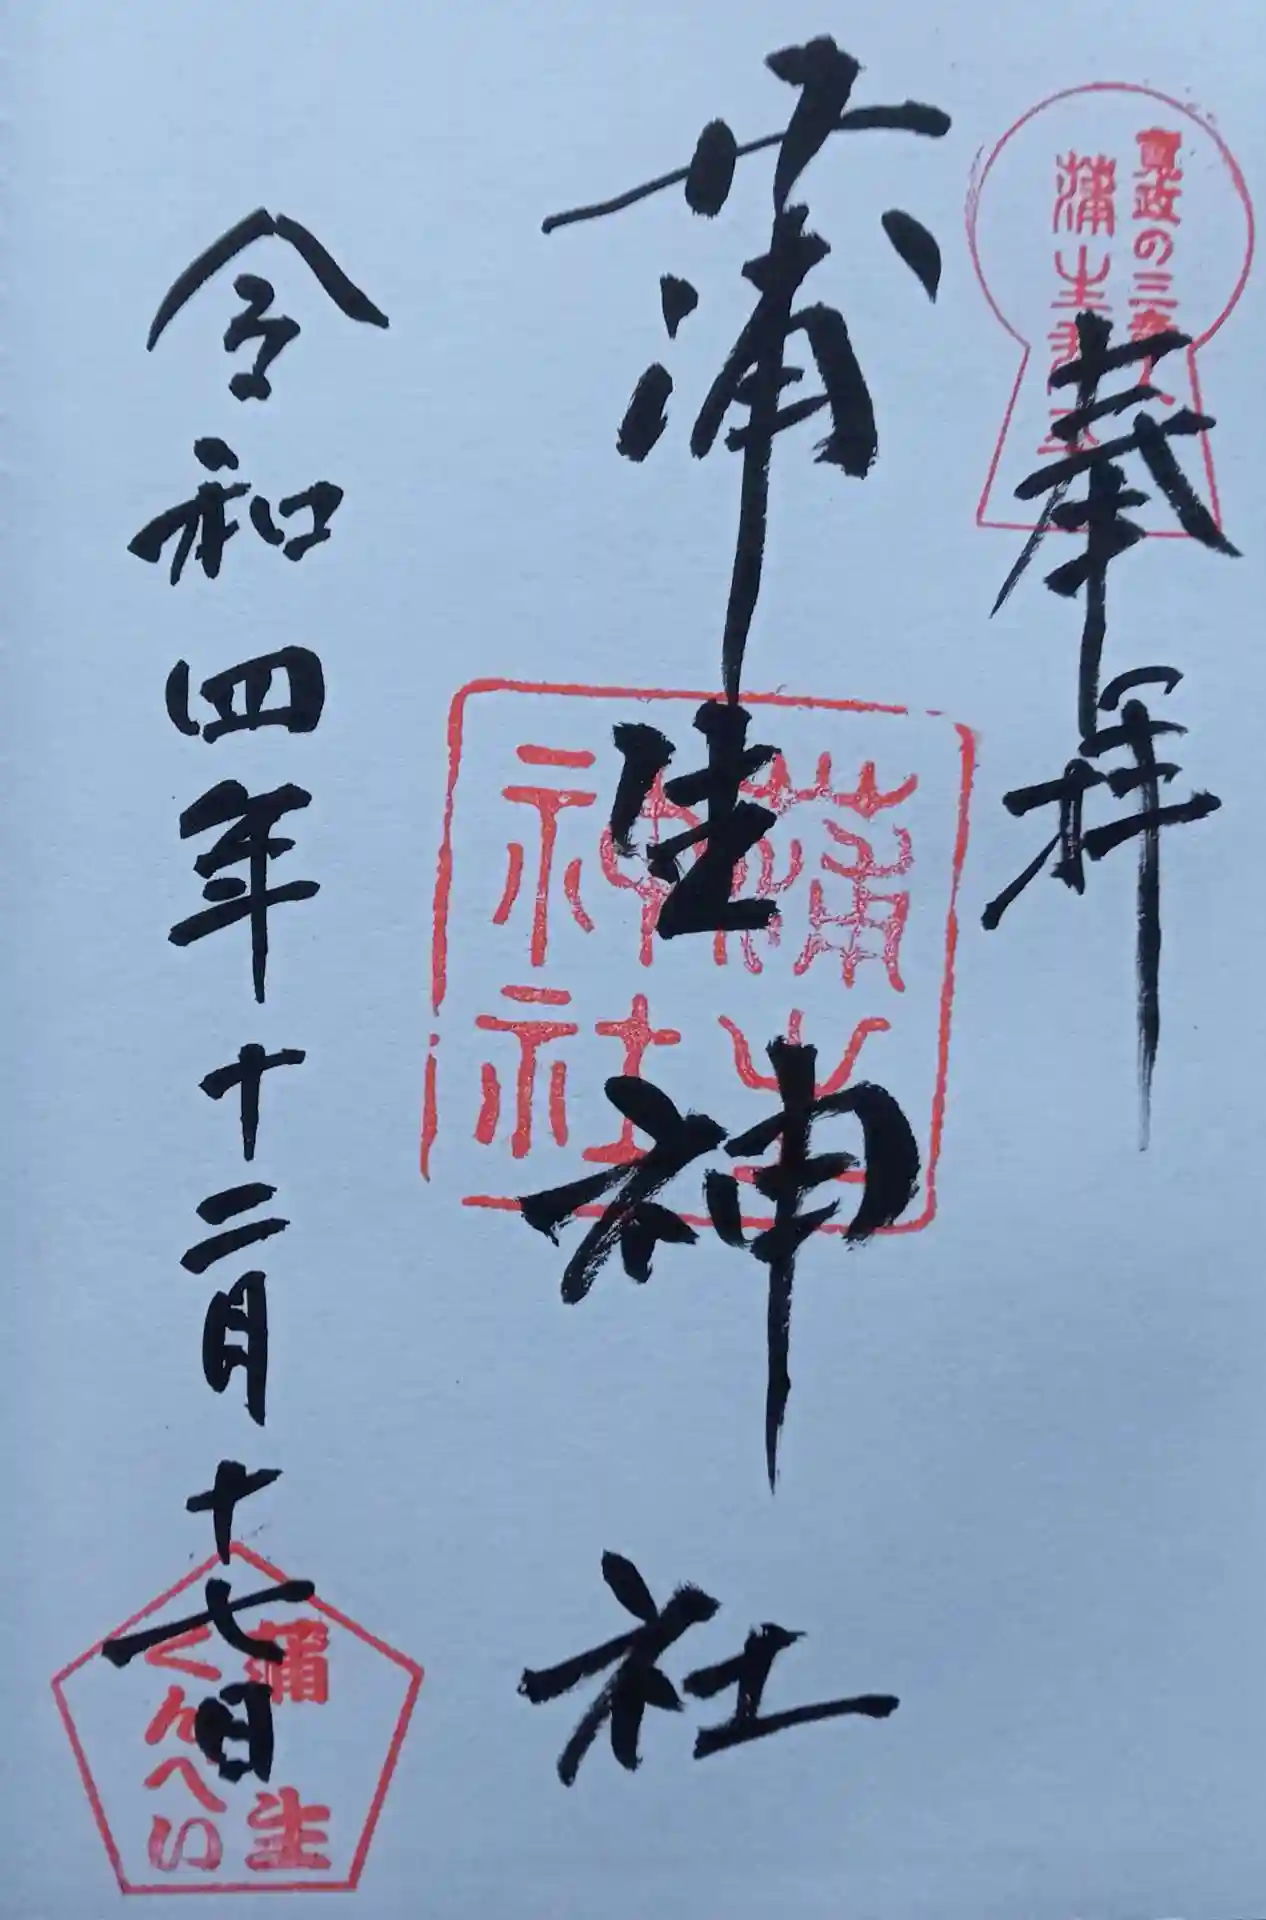 奉拝
寛政の三奇人
蒲生君平
蒲生神社
蒲生
神社
令和四年十二月十七日
蒲生
くんぺい